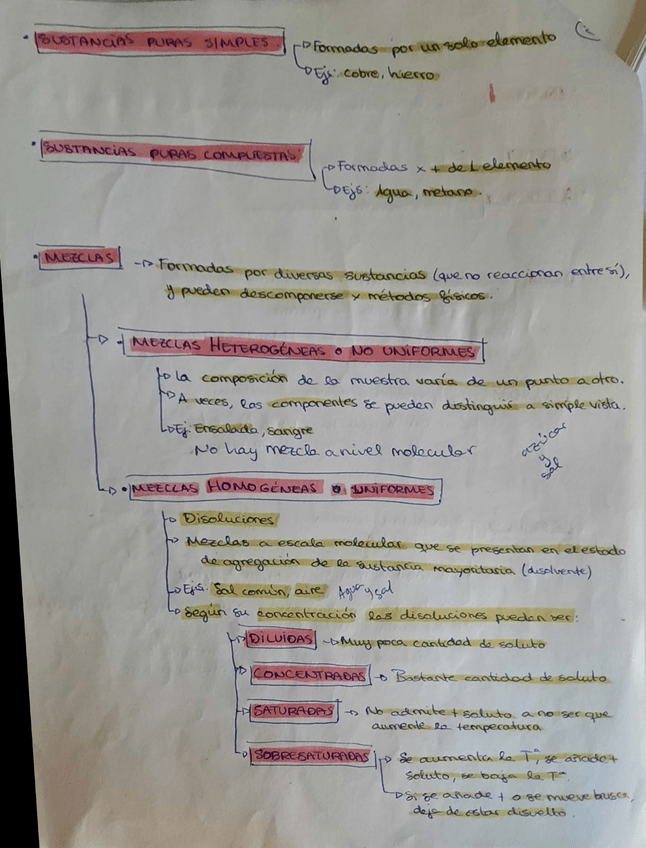 • SUSTANCIAS PURAS SIMPLES
Formadas por un solo elemento
Ejs: cobre, hierro
• SUSTANCIAS PURAS COMPUESTAS
Formadas x + de 1 elemento
Ejs: Agua, metano.
• MEZCLAS → Formadas por diversas sustancias (que no reaccionan entre sí),
y pueden descomponerse x métodos físicos.
• MEZCLAS HETEROGÉNEAS O NO UNIFORMES
La composición de la muestra varía de un punto a otro.
A veces, los componentes se pueden distinguir a simple vista.
Ej: Ensalada, sangre
No hay mezcla a nivel molecular
azúcar
y
sal
• MEZCLAS HOMOGÉNEAS O UNIFORMES
Disoluciones
Mezclas a escala molecular que se presentan en el estado
de agregación de la sustancia mayoritaria (disolvente)
Ejs: Sal común, aire Agua y sal
Según su concentración las disoluciones pueden ser:
DILUÍDAS → Muy poca cantidad de soluto
CONCENTRADAS → Bastante cantidad de soluto
SATURADAS → No admite + soluto a no ser que
aumente la temperatura
SOBRESATURADAS
Se aumenta la Tª, se añade +
soluto, se baja la Tª
Si se añade + o se mueve brusca,
deja de estar disuelto.